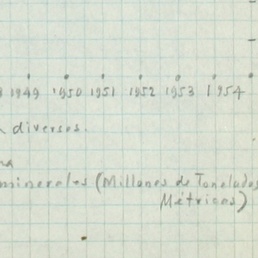 1949 1950 1951 1952 1953 1954
diversos.
minerales (Millones de Toneladas
Métricas)